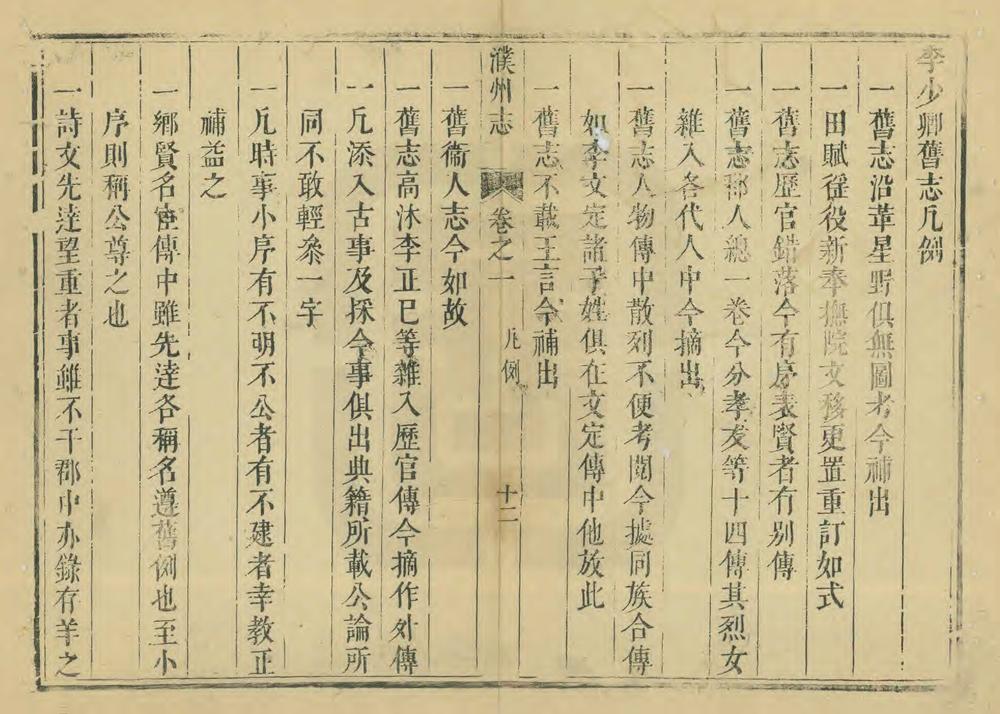 李少卿舊志凡例
一舊志沿革星野俱無圖考今補出
一田賦徭役新奉撫院文移更置重訂如式
一舊志歷官錯落今有序表賢者有别傳
一舊志郡人總一卷今分孝友等十四傳其烈女
雜入各代人中今摘出
一舊志人物傳中散列不便考閱今據同族合傳
如李文定諸子姓俱在文定傳中他放此
一舊志不載王言今補出
濮州志 卷之一 凡例 十二
一舊衞人志今如故
一舊志高沐李正巳等雜入歷官傳今摘作外傳
一凡添入古事及採今事俱出典籍所載公論所
同不敢輕叅一字
一凡時事小序有不明不公者有不建者幸教正
補益之
一鄉賢名宦傳中雖先逹各稱名遵舊例也至小
序則稱公尊之也
一詩文先逹望重者事雖不干郡中亦錄存羊之